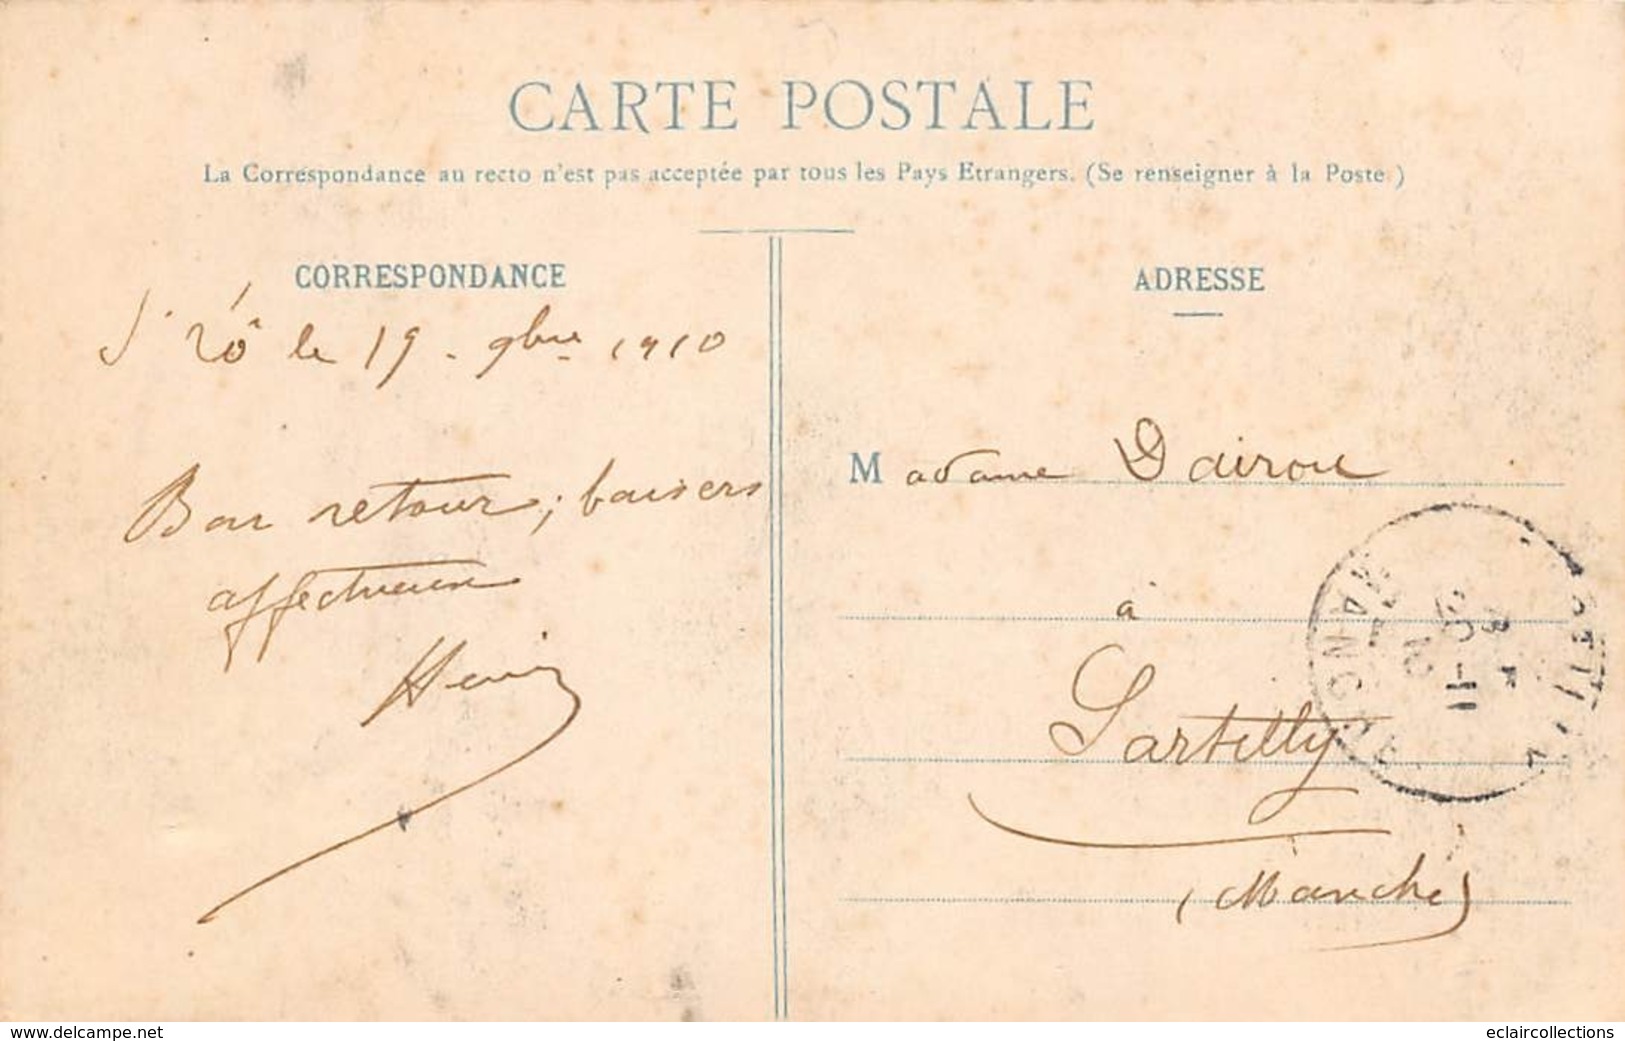 CARTE POSTALE
La Correspondance au recto n'est pas acceptée par tous les Pays Etrangers. (Se renseigner à la Poste.)
CORRESPONDANCE
St Lô le 19 - 9bre 1910
Bon retour, baisers
affectueux
Henri
ADRESSE
Madame Dairou
à
Sartilly
(Manche)
MANCHE
www.delcampe.net
eclaircollections